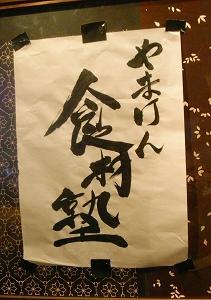 やまけん
食材塾